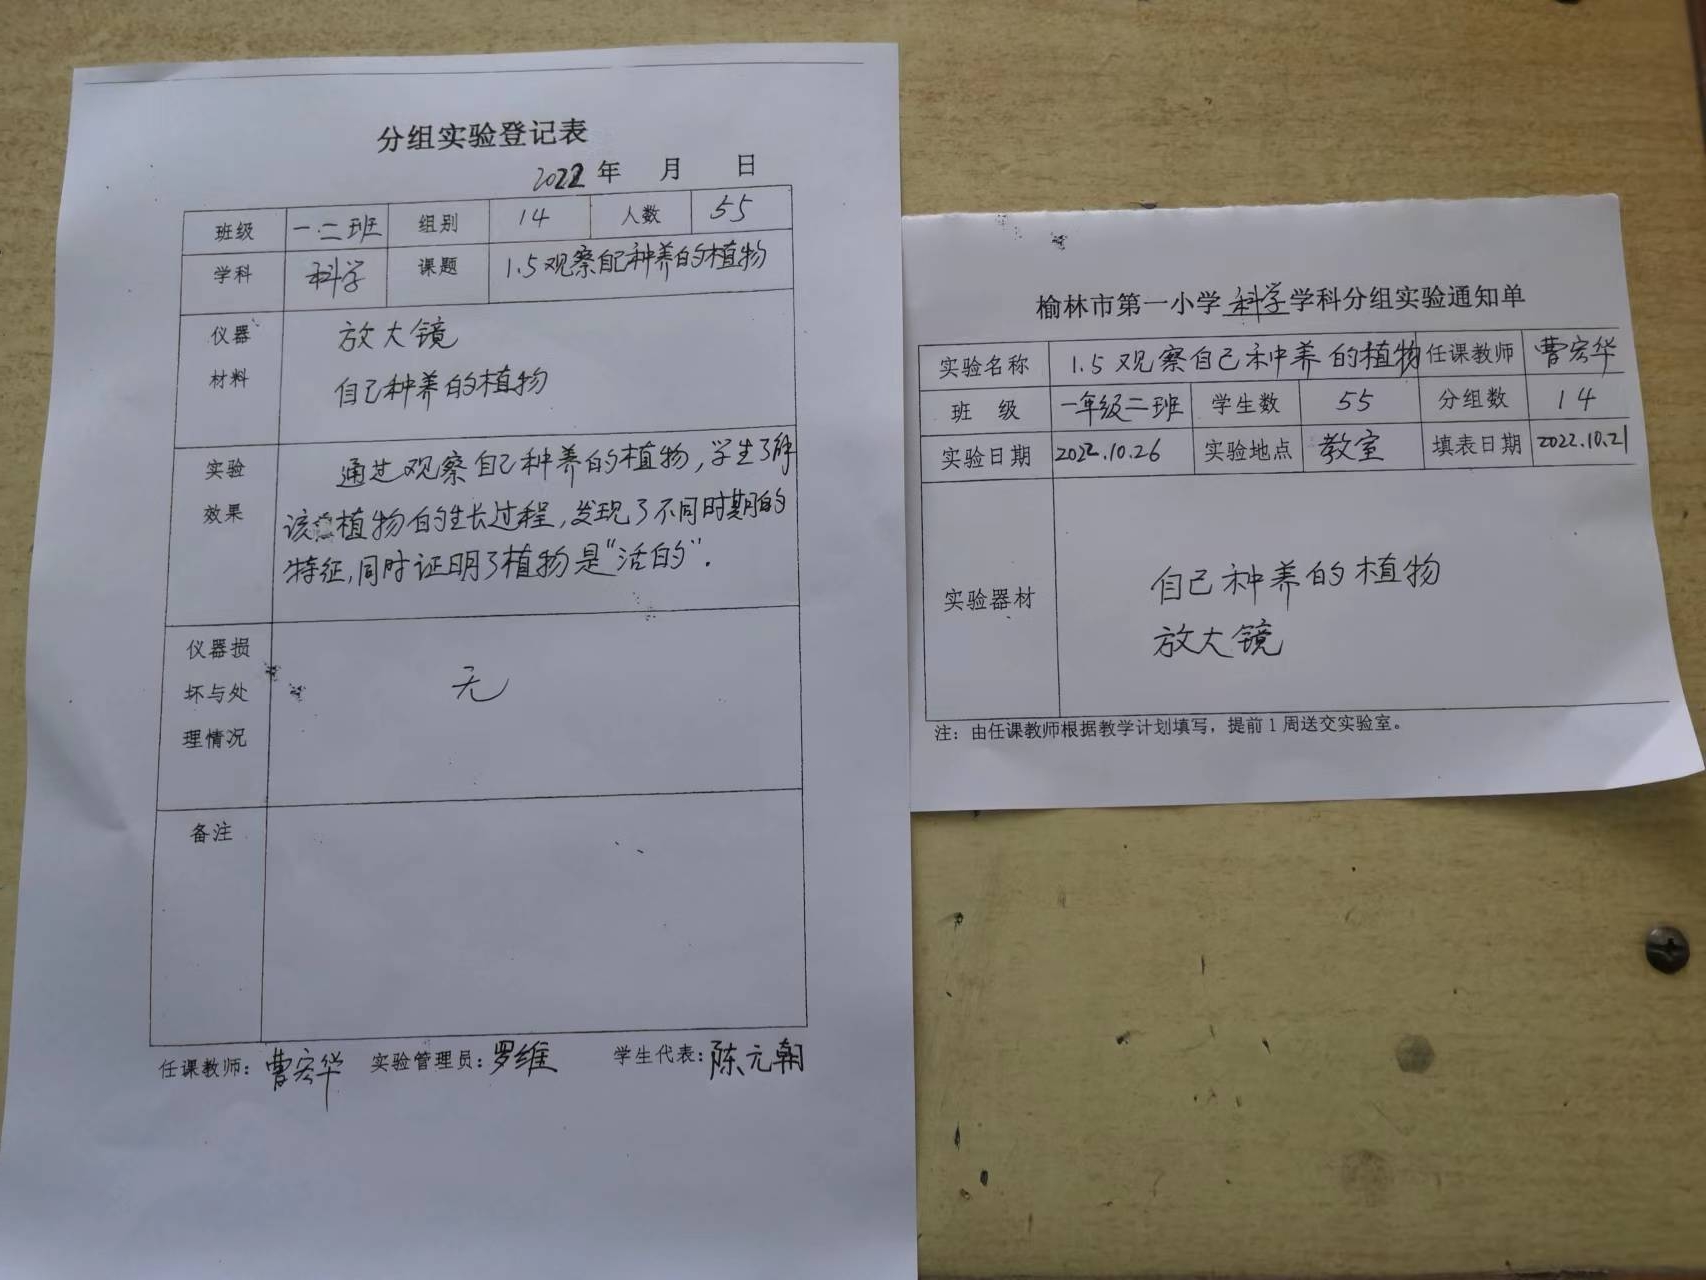 分组实验登记表
2022年 月 日
班级 一.二班 组别 14 人数 55
学科 科学 课题 1.5观察自己种养的植物
仪器 放大镜
材料 自己种养的植物
实验 通过观察自己种养的植物，学生了解
效果 该植物的生长过程，发现了不同时期的
特征，同时证明了植物是“活的”.
仪器损
坏与处 无
理情况
备注
任课教师：曹宏华 实验管理员：罗维 学生代表：陈元朝
榆林市第一小学科学学科分组实验通知单
实验名称 1.5观察自己种养的植物 任课教师 曹宏华
班 级 一年级二班 学生数 55 分组数 14
实验日期 2022.10.26 实验地点 教室 填表日期 2022.10.21
自己种养的植物
实验器材
放大镜
注：由任课教师根据教学计划填写，提前1周送交实验室。